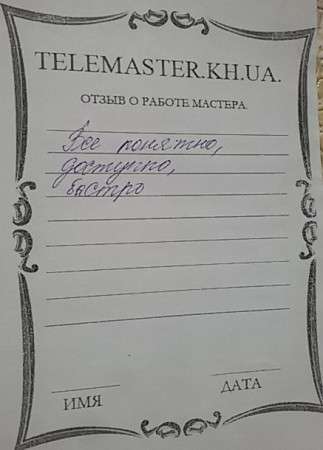 TELEMASTER.KH.UA.
ОТЗЫВ О РАБОТЕ МАСТЕРА.
Все понятно,
доступно,
быстро
ИМЯ
ДАТА